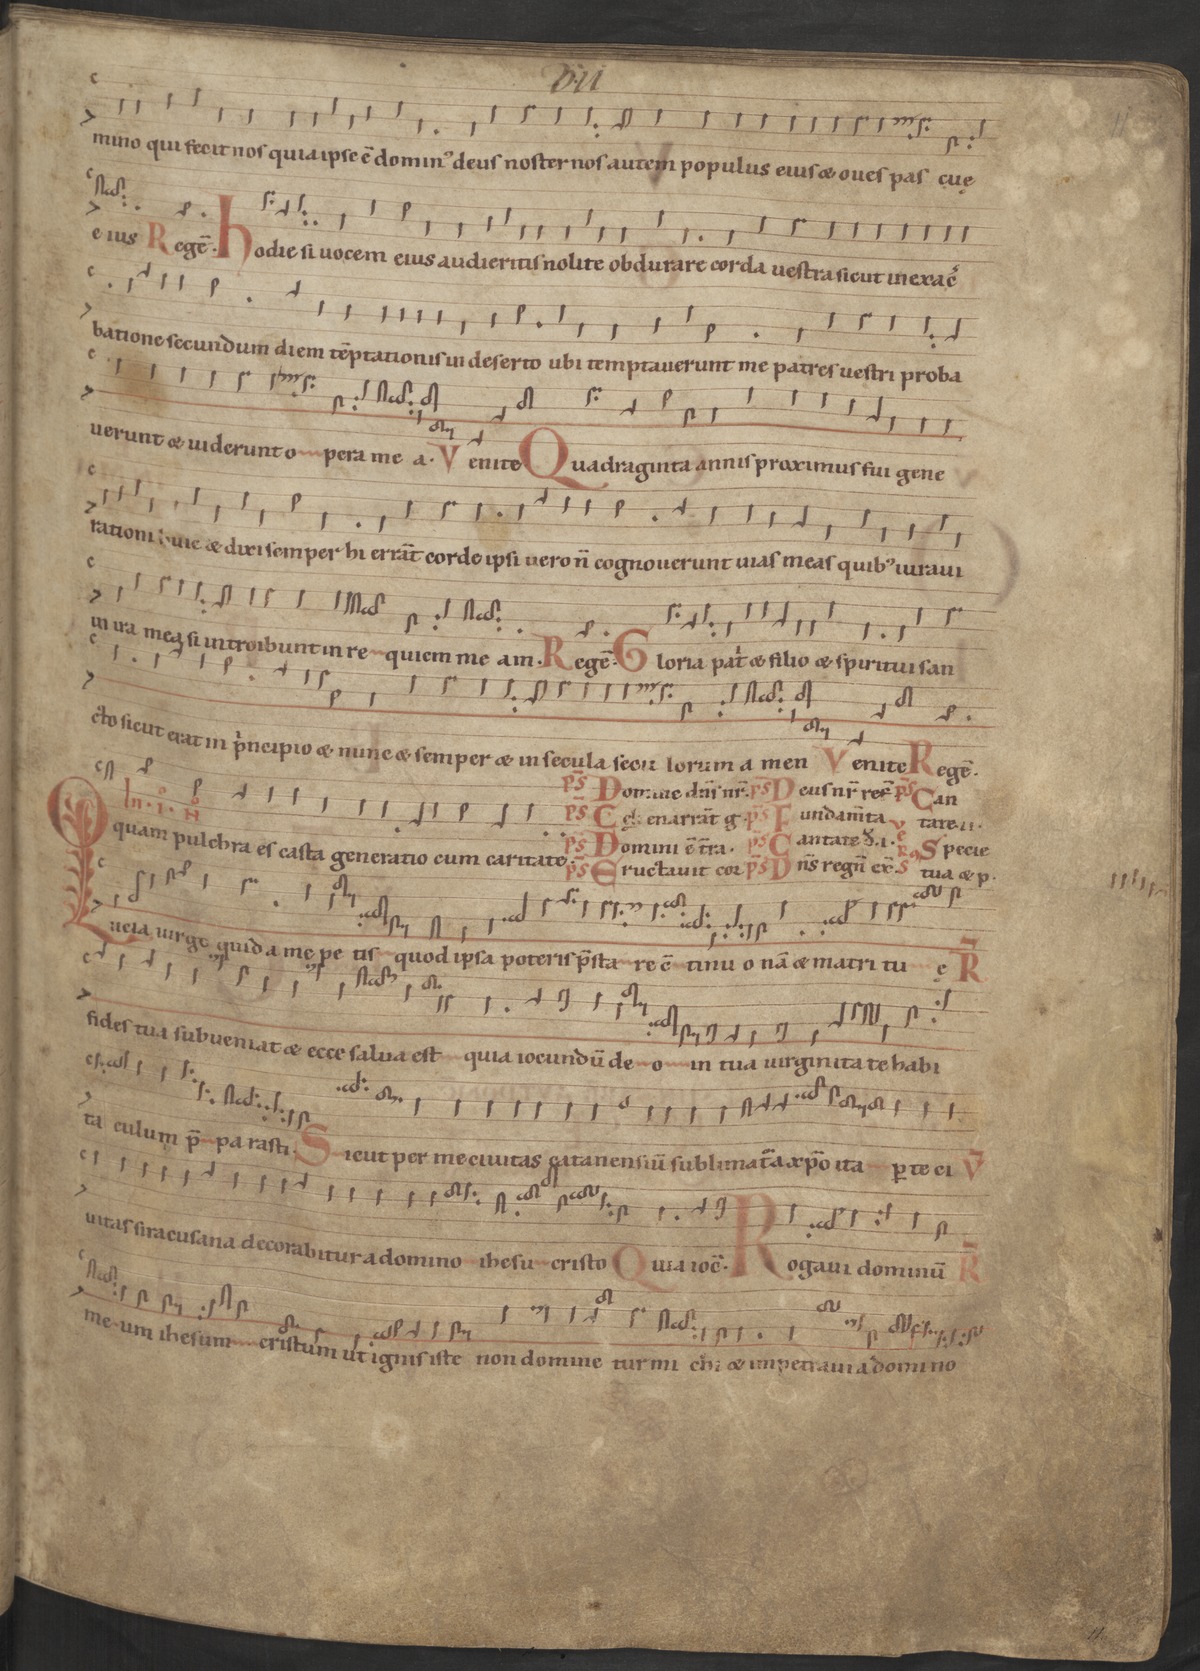 VII
mino qui fecit nos quia ipse ē domin⁹ deus noster nos autem populus eius & oues pas cuę
eius Regē. hodie si uocem eius audieritis nolite obdurare corda uestra sicut in exac̄
batione secundum diem tēptationis in deserto ubi temptauerunt me patres uestri proba
uerunt & uiderunt o pera me a. Venite Quadraginta annis proximus fui gene
rationi huic & dixi semper hi errāt corde ipsi uero n̄ cognouerunt uias meas quib⁹ iuraui
in ira mea si introibunt in re quiem me am. Regē. Gloria pat̄ & filio & spiritui san
cto sicut erat in p̄ncipio & nunc & semper & in secula secu lorum a men Venite Regē.
In .i. No
ps̄ Domine dn̄s nr̄. ps̄ Deus nr̄ ref̄ ps̄ Can
O quam pulchra es casta generatio cum caritate.
ps̄ Celi enarrāt g. ps̄ Fundam̄ta tate
ps̄ Domini ē t̄ra. ps̄ Cantate Specie
ps̄ Eructauit cor ps̄ Dn̄s regn̄ ex̄. tua & p.
Lucia uirgo quid a me pe tis quod ipsa poteris p̄sta re c̄ tinu o nā & matri tu ę R̄
fides tua subueniat & ecce salua est quia iocundū de o in tua uirginita te habi
ta culum p̄ pa rasti. Sicut per me ciuitas catanensiū sublimat̄ a xp̄o ita per te ci V̄
uitas siracusana decorabitur a domino ihesu cristo Quia ioc̄. Rogaui dominū R̄
me um ihesum cristum ut ignis iste non domine tur mi chi & impetraui a domino